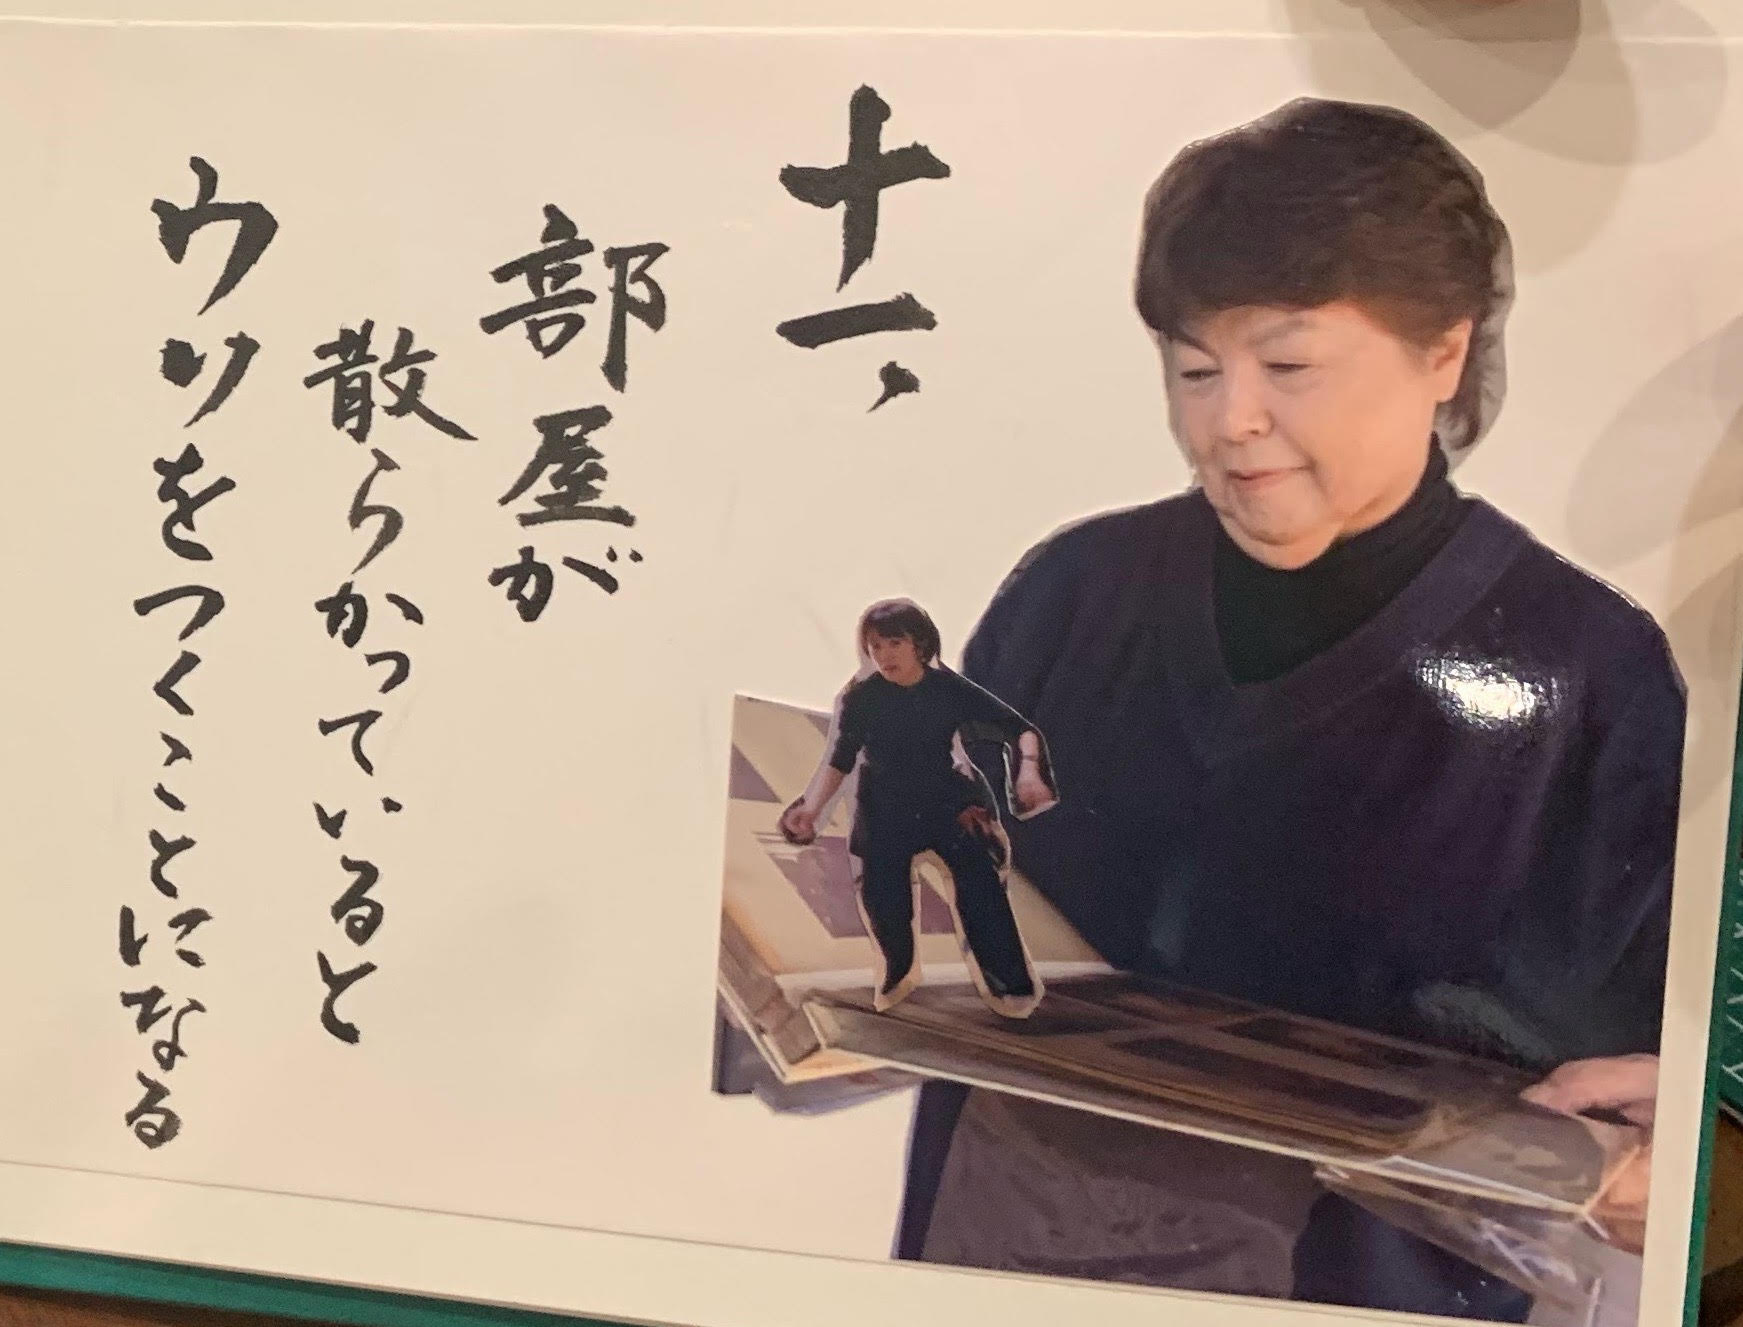 十一、
部屋が
散らかっていると
ウソをつくことになる